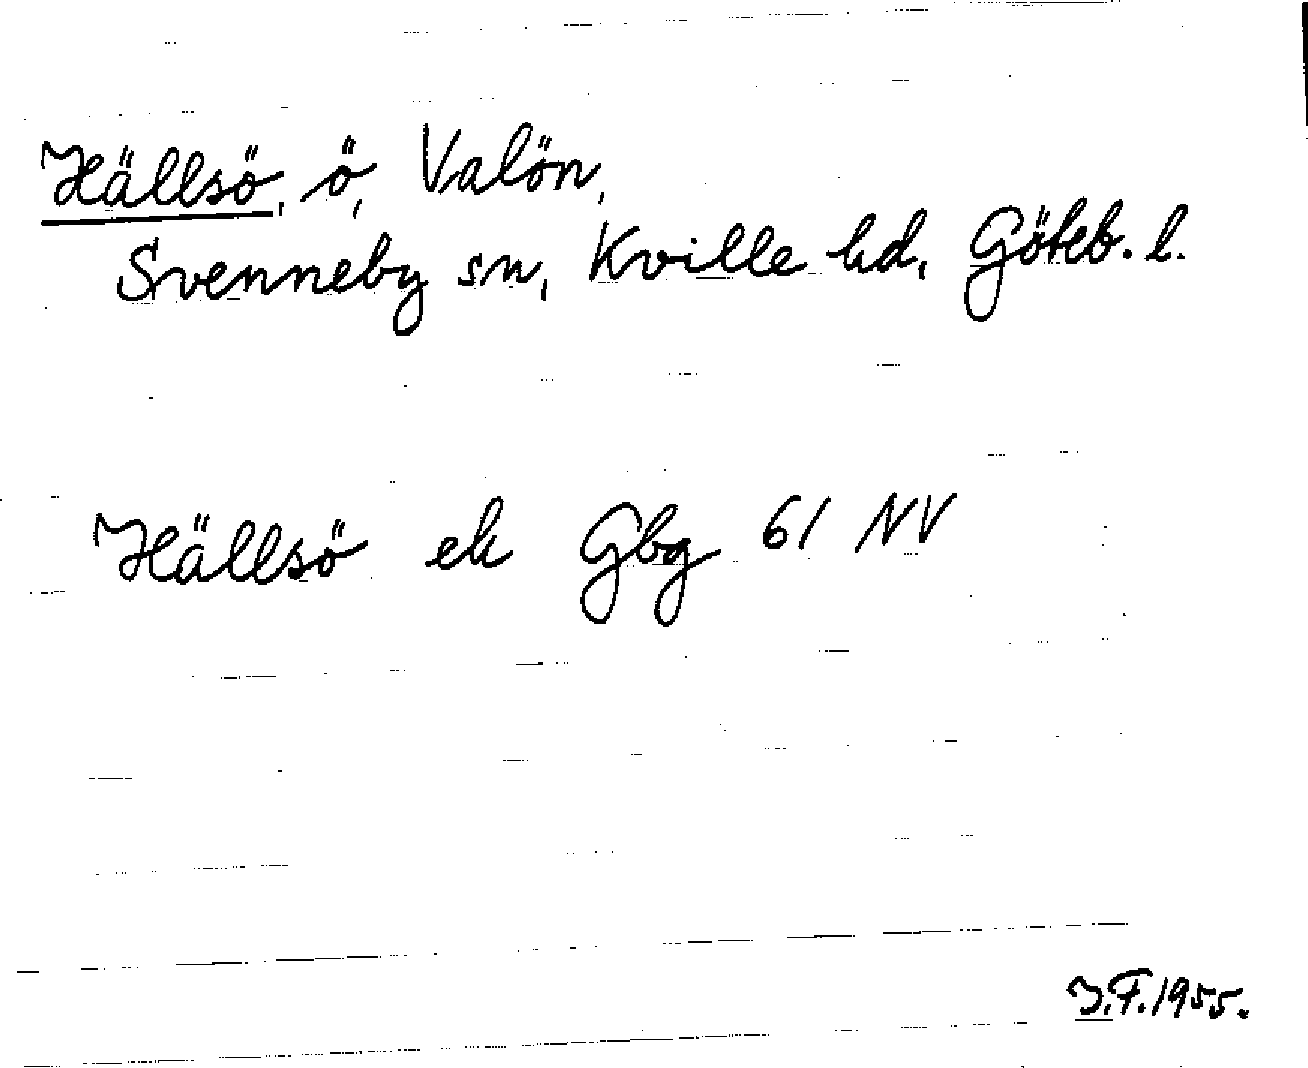 Hällsö, ö, Valön,
Svenneby sn, Kville hd, Göteb. l.
Hällsö ek Gbg 61 NV
I.F.1955.